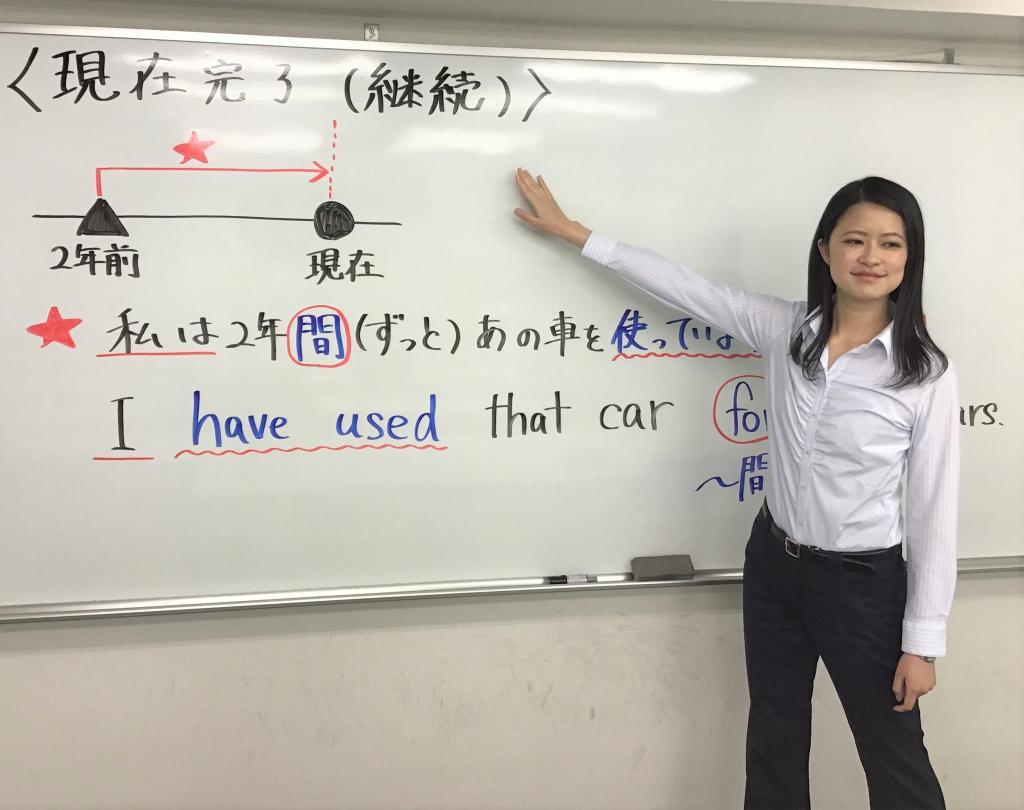 〈現在完了(継続)〉
2年前 現在
★ 私は2年間(ずっと)あの車を使ってい
I have used that car
～間